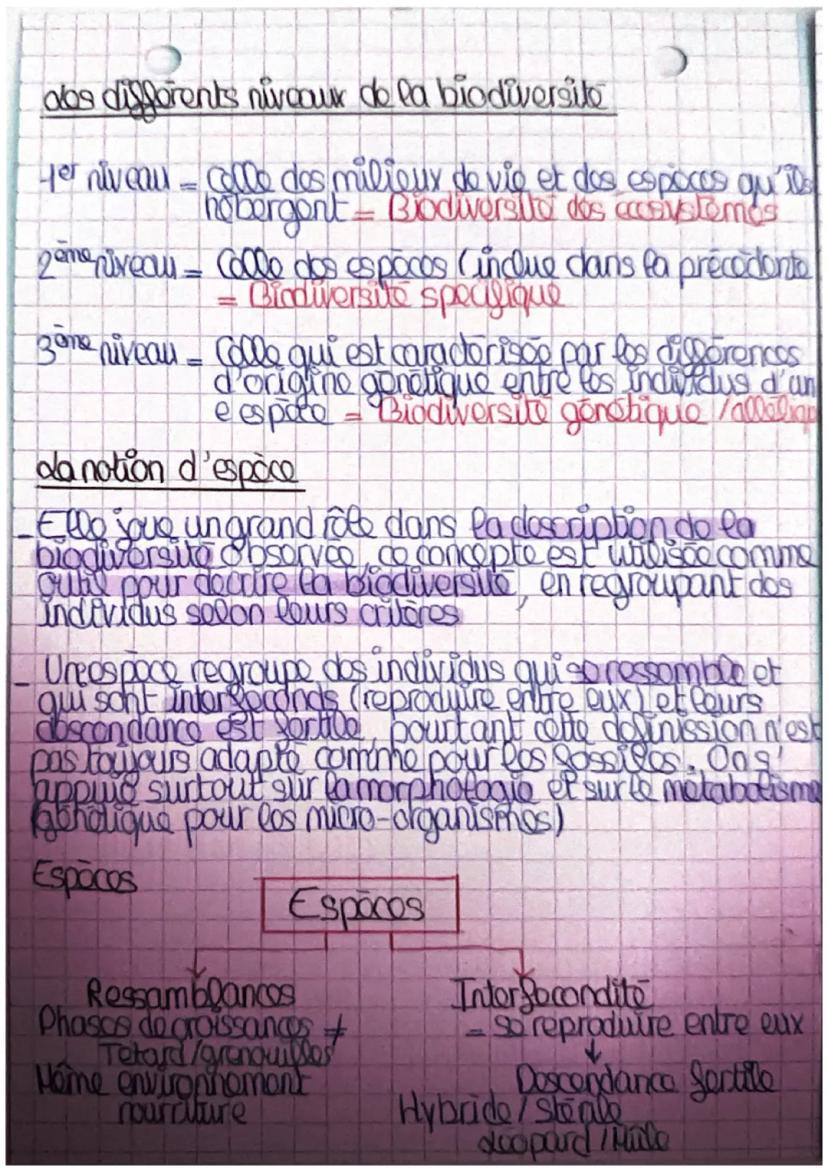 Les différents niveaux de la biodiversité
1er niveau = Celle des milieux de vie et des espèces qu'ils
hébergent = Biodiversité des écosystèmes
2ème niveau = Celle des espèces (inclue dans la précédente
= Biodiversité spécifique
3ème niveau = Celle qui est caractérisée par les différences
d'origine génétique entre les individus d'un
e espèce = Biodiversité génétique /
La notion d'espèce
- Elle joue un grand rôle dans la description de la
biodiversité observée, ce concept est utilisée comme
outil pour décrire la biodiversité, en regroupant des
individus selon leurs critères
- Une espèce regroupe des individus qui se ressemble et
qui sont interféconds (reproduire entre eux) et leurs
descendance est fertile pourtant cette définission n'est
pas toujours adapté comme pour les fossiles. On s'
appuie surtout sur la morphologie et sur le métabolisme
(génétique pour les micro-organismes)
Espèces
Espèces
Ressamblances
Phases de croissances ≠
Tétard/grenouilles
Même environnement
nourriture
Interfécondité
= se reproduire entre eux
Descendance fertile
Hybride / Stérile
Léopard / Mule